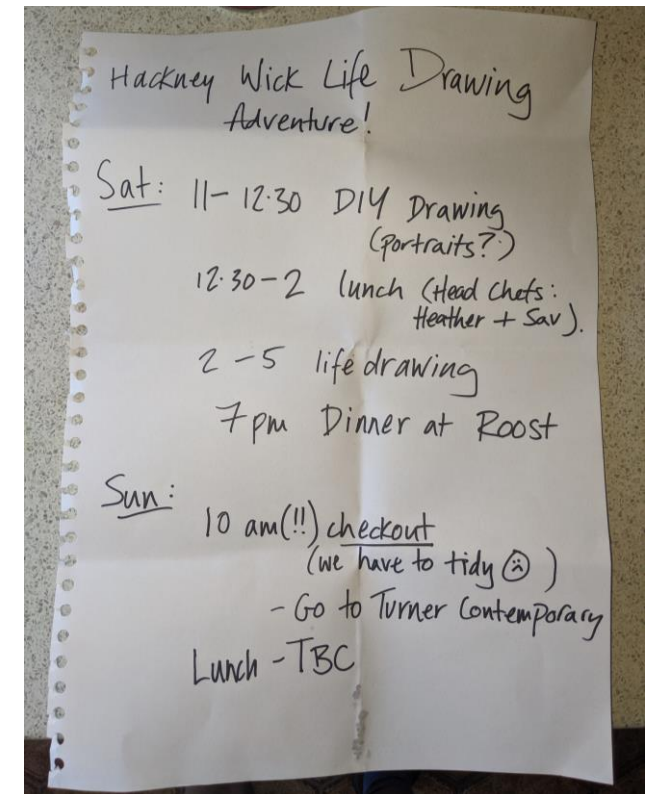 Hackney Wick Life Drawing
Adventure!
Sat: 11-12.30 DIY Drawing
(portraits?)
12.30-2 lunch (Head Chefs:
Heather + Sav).
2-5 life drawing
7pm Dinner at Roost
Sun:
10 am(!!) checkout
(we have to tidy ☹)
- Go to Turner Contemporary
Lunch - TBC